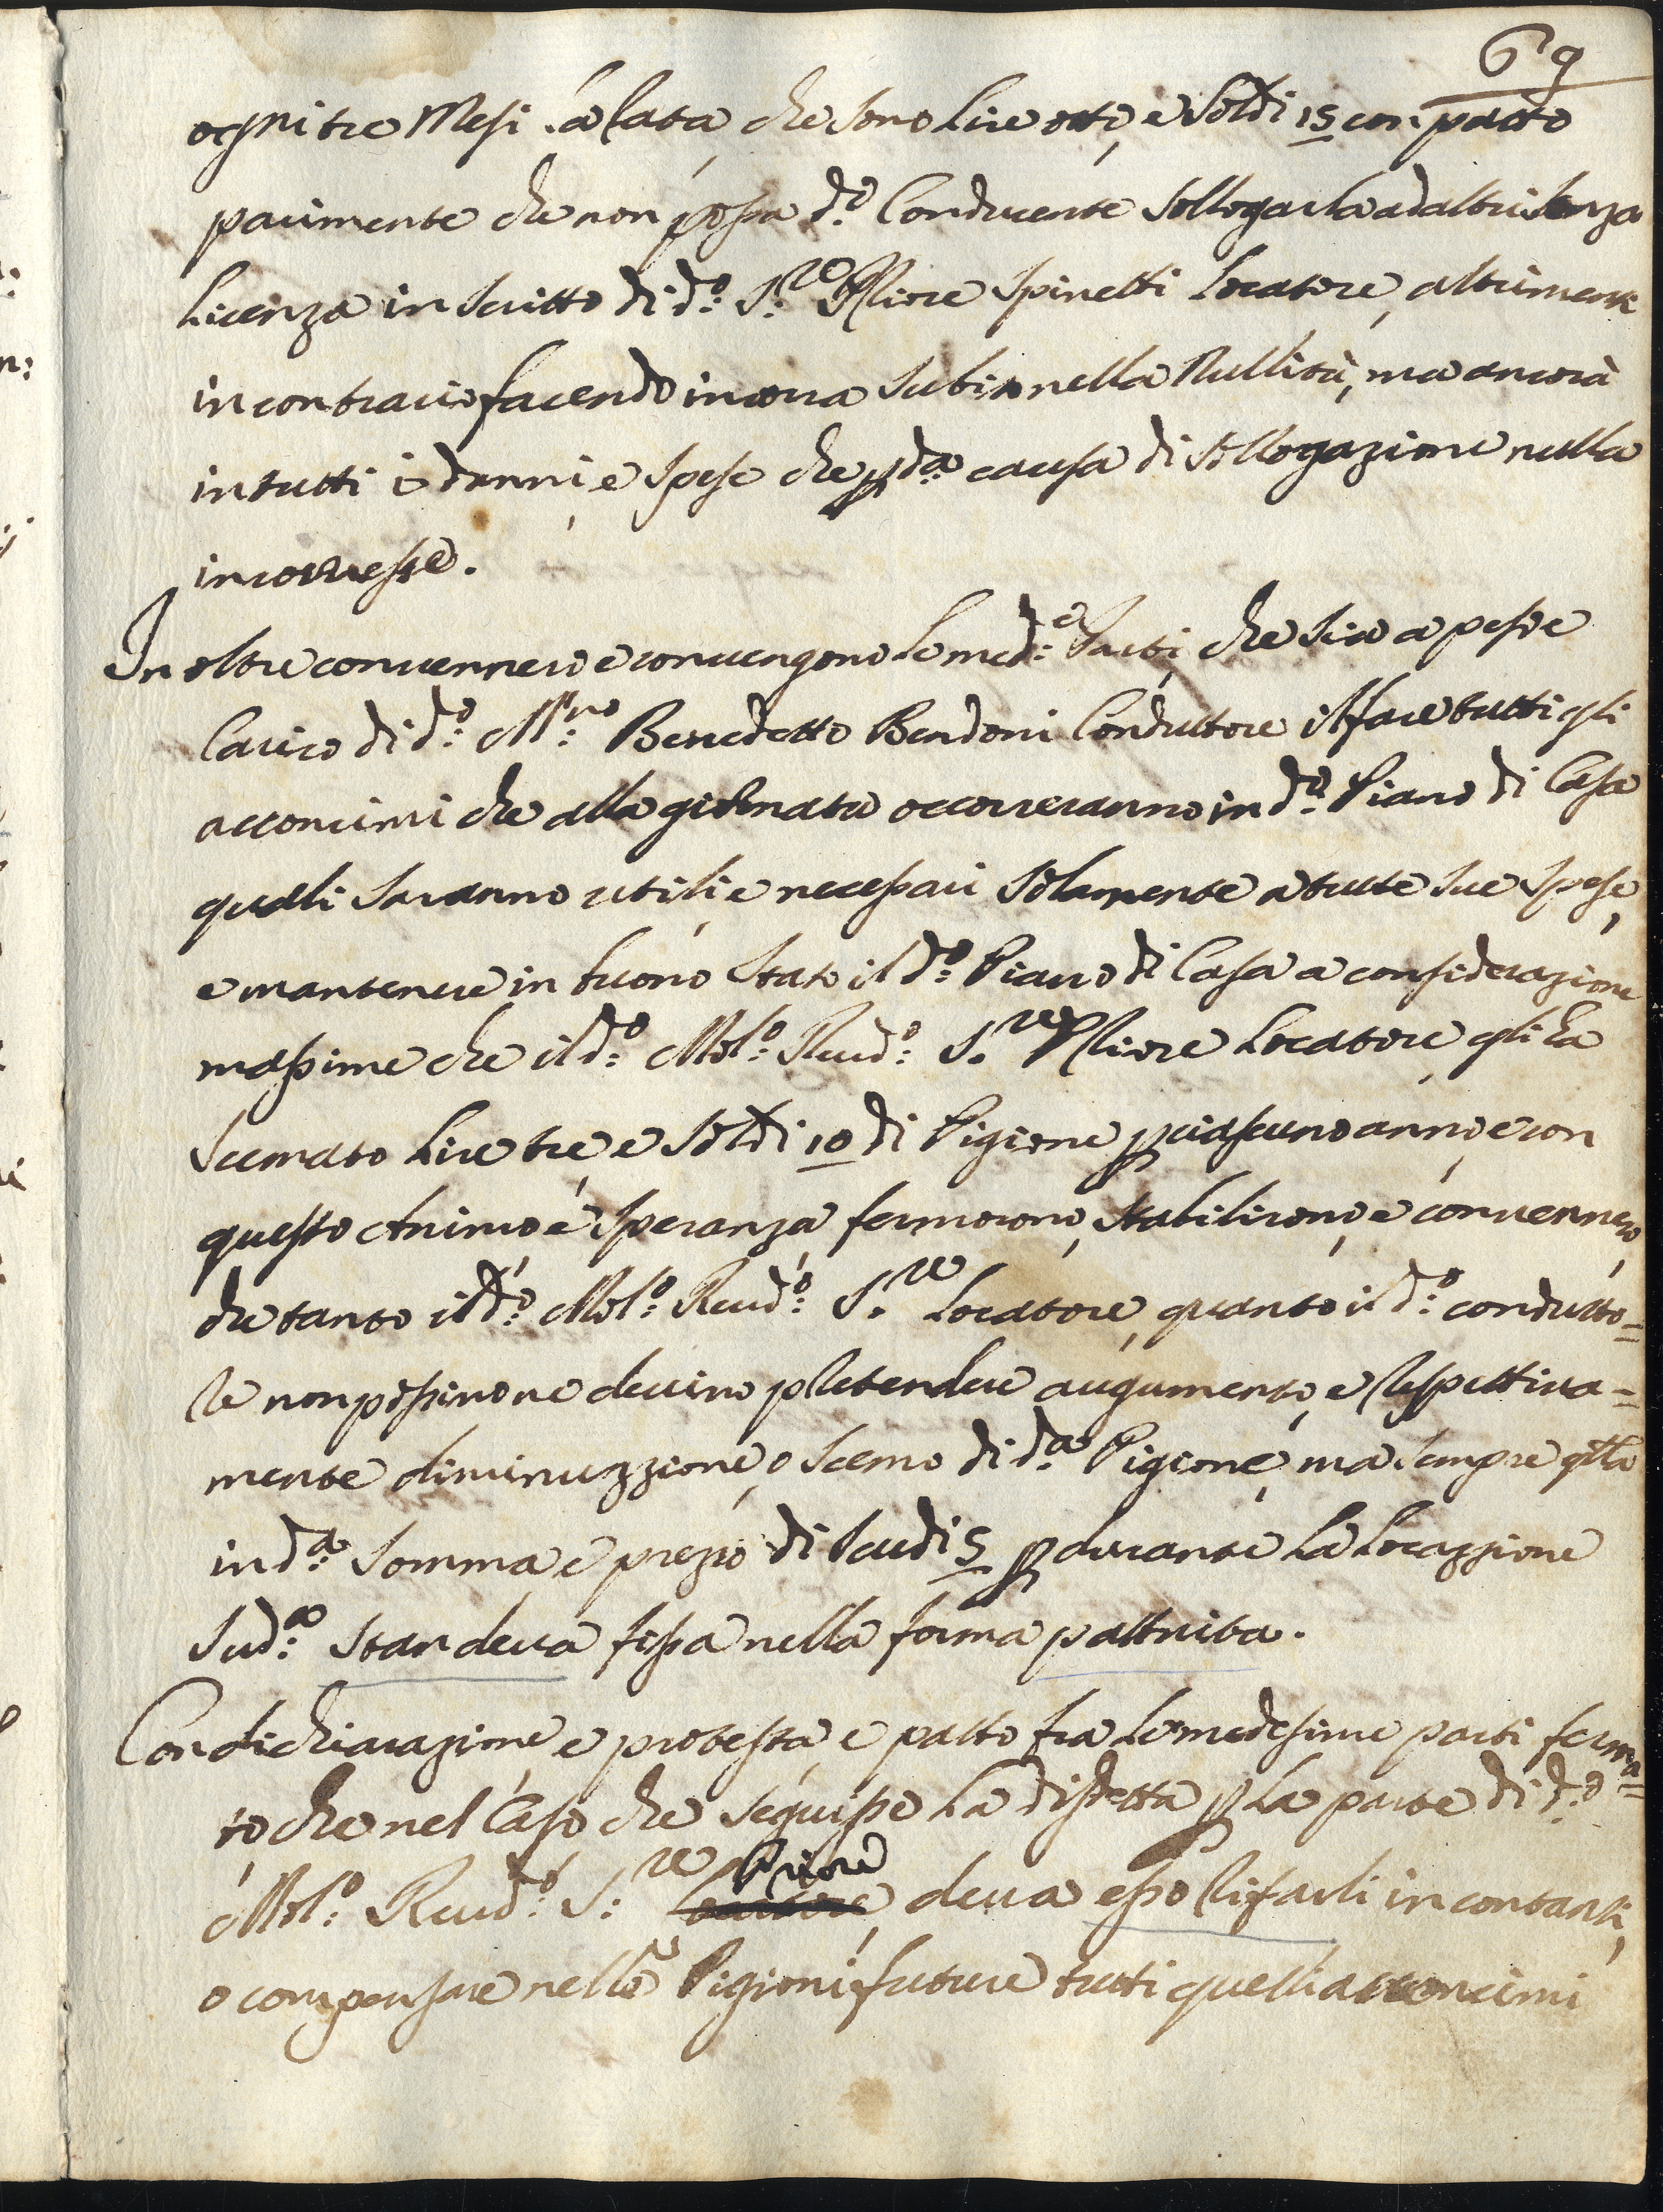 69
ogni tre Mesi à rata che sono Lire otto, e Soldi 15 con patto
parimente che non possa d.º Conducente sollogarla ad altri senza
Licenza in scritto di d.º S.re Priore Spinetti Locatore, altrimenti
in contrario facendo incorra subito nella Nullità, ma ancora
in tutti i danni, e spese che p d.a causa di sollogazione nulla
incorresse.
In oltre convennero e convengono le med.e Parti, che sia a peso e
Carico di d.º M.ro Benedetto Bendoni Conduttore il fare tutti gli
acconcimi che alla giornata occorreranno in d.º Piano di Casa
quali saranno utili, e necessari solamente a tutte sue spese,
e mantenere in buono stato il d.º Piano di Casa a considerazione
massime che il d.º Mol.º Reud.º S.re Priore Locatore gli ha
scemato Lire tre e Soldi 10 di Pigione p ciascuno anno, e con
questo Animo e speranza fermorono, stabilirono, e convennero,
che tanto il d.º Mol.º Reud.º S.re Locatore, quanto il d.º condutto=
re non possino ne devino pretendere augumento, e respettiva=
mente diminuzzione, o scemo di d.a Pigione, ma sempre q.lla
in d.a somma e prezzo di Scudi 5 p durante la Locazzione
sud.a star deva fissa nella forma pattuita.
Con dichiarazione, e protesta, e patto fra le medesime parti ferma=
to che nel Caso che seguisse la disdetta p la parte di d.º
Mol.º Reud.º S.re Priore, deva esso rifarli in contanti,
o compensare nelle Pigioni future tutti quelli acconcimi